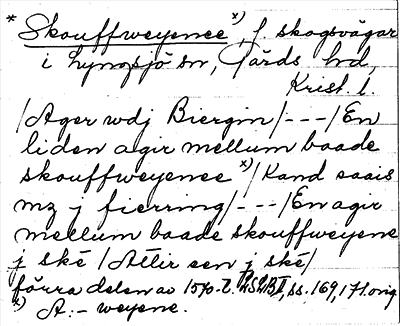 * Skouffweyenee x), f skogsvägar
i Lyngsjö sn, Gärds hd,
Krist. l.
/Ager wdj Biergin/---/En
liden agir mellum baade
skouffweyenee x)/Kand saais
mz j fierring/---/En agir
mellum baade skouffweyene
j ske /Attir een j ske/
förra delen av 1570-t. ss. 169, 171. orig
x) A: - weyene.